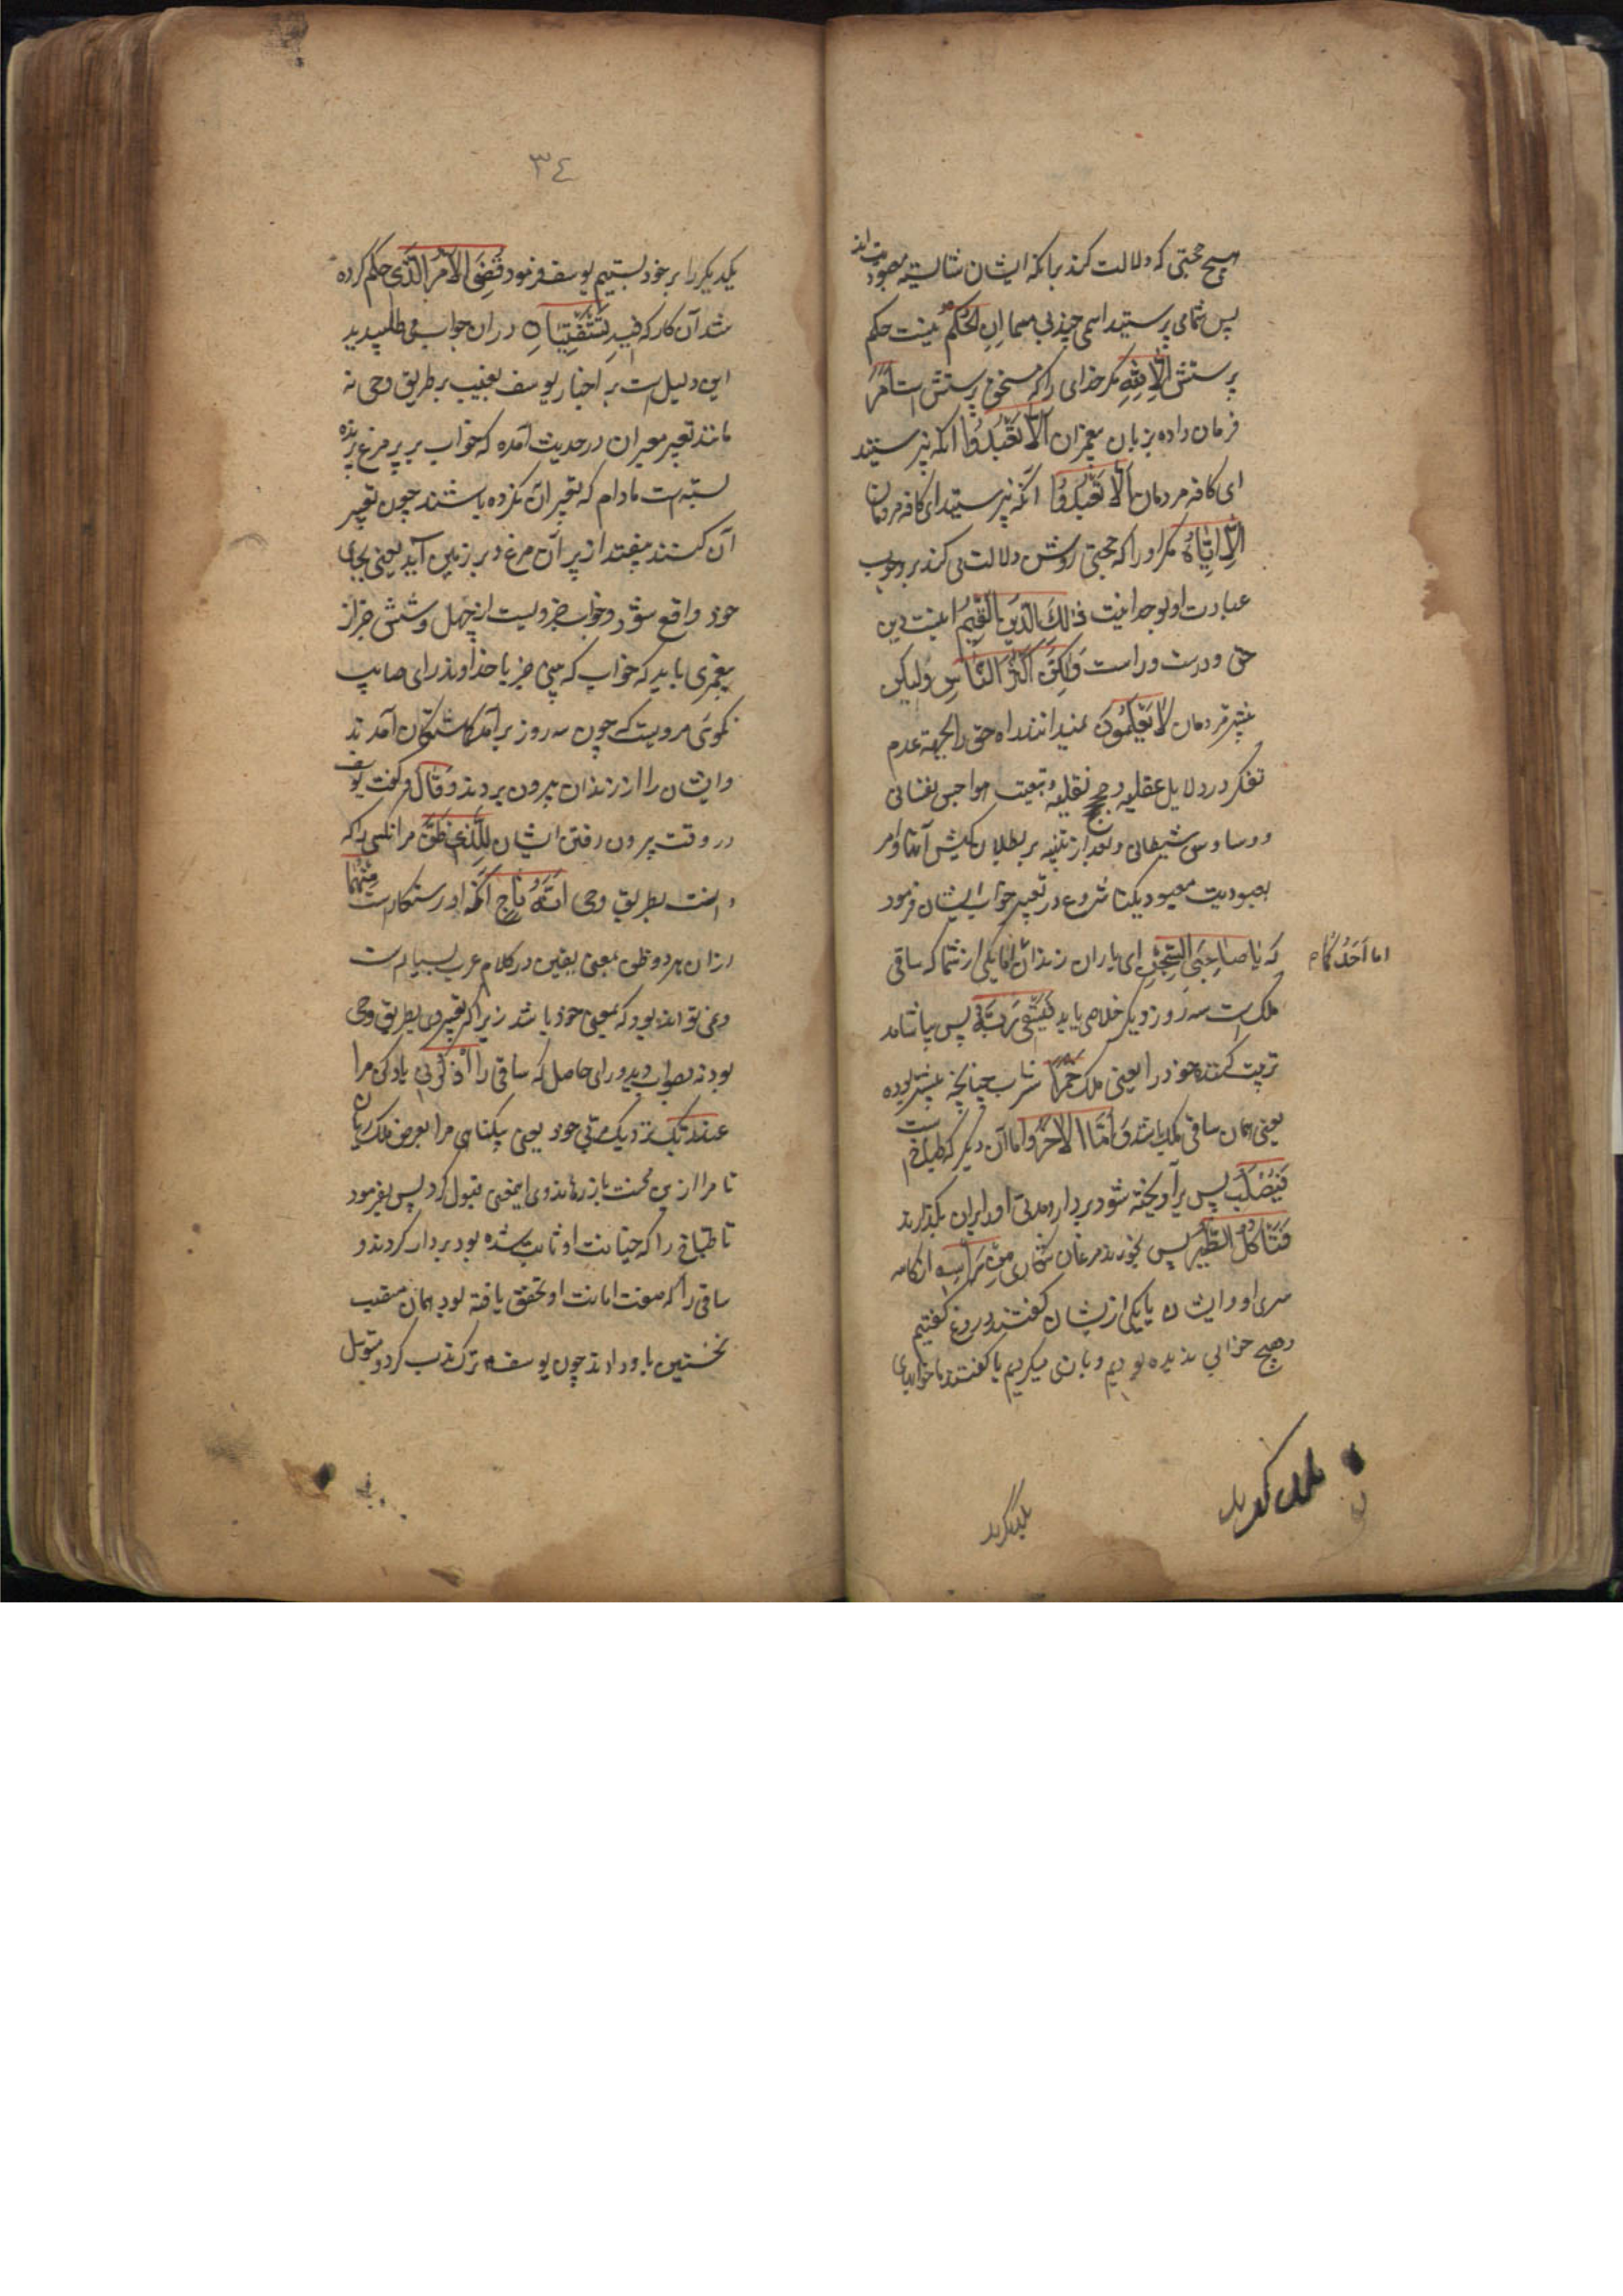 هیچ حجتی که دلالت کند بانکه ایشان شایسته معبودیت‌اند
پس شما می پرستید اسمی چند بی مسما اِنِ الْحُکْمُ نیست حکم
پرستش اِلَّا لِلّٰهِ مگر خدای را که مستحق پرستش است اَمَرَ
فرمان داده بزبان پیغمبران اَلَّا تَعْبُدُوا آنکه نپرستید
ای کافه مردمان اَلَّا تَعْبُدُوا آنکه نپرستید ای کافه مردمان
اِلَّا اِیَّاهُ مگر او را که حجتی روشن دلالت می کند بر وجوب
عبادت او بوحدانیت ذٰلِکَ الدِّینُ الْقَیِّمُ اینست دین
حق و درست و راست وَلٰکِنَّ اَکْثَرَ النَّاسِ ولیکن
بیشتر مردمان لَا یَعْلَمُونَ نمیدانند راه حق را بجهة عدم
تفکر در دلایل عقلیه و حجج نقلیه و تبعیت هواجس نفسانی
و وساوس شیطانی و بعد از تنبیه بر بطلان کیش آنها و امر
بعبودیت معبود یکتا شروع در تعبیر خواب ایشان فرمود
که یَا صَاحِبَیِ السِّجْنِ ای یاران زندان اما یکی از شما که ساقی
اما اَحَدُکُمَا م
ملک است سه روز دیگر خلاصی یابد فَیَسْقِی رَبَّهُ پس بیاشامد
تربیت کننده خود را یعنی ملک خَمْرًا شراب چنانچه پیشتر بوده
یعنی همان ساقی ملک باشد وَ اَمَّا الْاٰخَرُ و اما آن دیگر که طباخ است
فَیُصْلَبُ پس برآویخته شود بردار و مدتی او را بران بگذارند
فَتَاْکُلُ الطَّیْرُ پس بخورند مرغان شکاری مِنْ رَاْسِهِ از کاسه
سر او و ایشان یا یکی ازیشان گفتند دروغ گفتیم
و هیچ خوابی ندیده بودیم و بازی میکردیم یا گفتند ما خوابهای
یکدیگر
٣٤
یکدیگر را بر خود بستیم یوسف فرمود قُضِیَ الْاَمْرُ الَّذِی حکم کرده
شد آن کار که فِیهِ تَسْتَفْتِیَانِ ٥ در ان جواب می طلبیدید
این دلیل است بر اخبار یوسف بغیب بر طریق وحی نه
مانند تعبیر معبران در حدیث آمده که خواب بر پر مرغ پرنده
بسته است مادام که تعبیر آن نکرده باشند چون تعبیر
آن کنند بیفتد از پر آن مرغ و بر زمین آید یعنی بجای
خود واقع شود و خواب جزویست از چهل و شش جزو از
پیغمبری باید که خواب که بینی جز با خداوند رای صایب
نگوئی مرویست که چون سه روز برآمد گماشتگان آمدند
و ایشان را از زندان بیرون بردند وَقَالَ و گفت یوسف
در وقت بیرون رفتن ایشان لِلَّذِی ظَنَّ مر آنکسی را که
دانست بطریق وحی اَنَّهُ نَاجٍ آنکه او رستکارست مِنْهُمَا
ازان هر دو و ظن بمعنی یقین در کلام عرب بسیار است
و نمی تواند بود که بمعنی خود باشد زیرا که تعبیر وی بطریق وحی
بود نه بصواب دید و رای حاصل که ساقی را اُذْکُرْنِی یاد کن مرا
عِنْدَ رَبِّکَ نزدیک مربی خود یعنی بیکناهی مرا بعرض ملک رسان
تا مرا ازین محنت باز رهاند وی اینمعنی قبول کرد پس بفرمود
تا طباخ را که خیانت او ثابت شده بود بردار کردند و
ساقی را که صفت امانت او تحقق یافته بود همان منصب
نخستین باو دادند چون یوسف ترک ادب کرد و متوسل